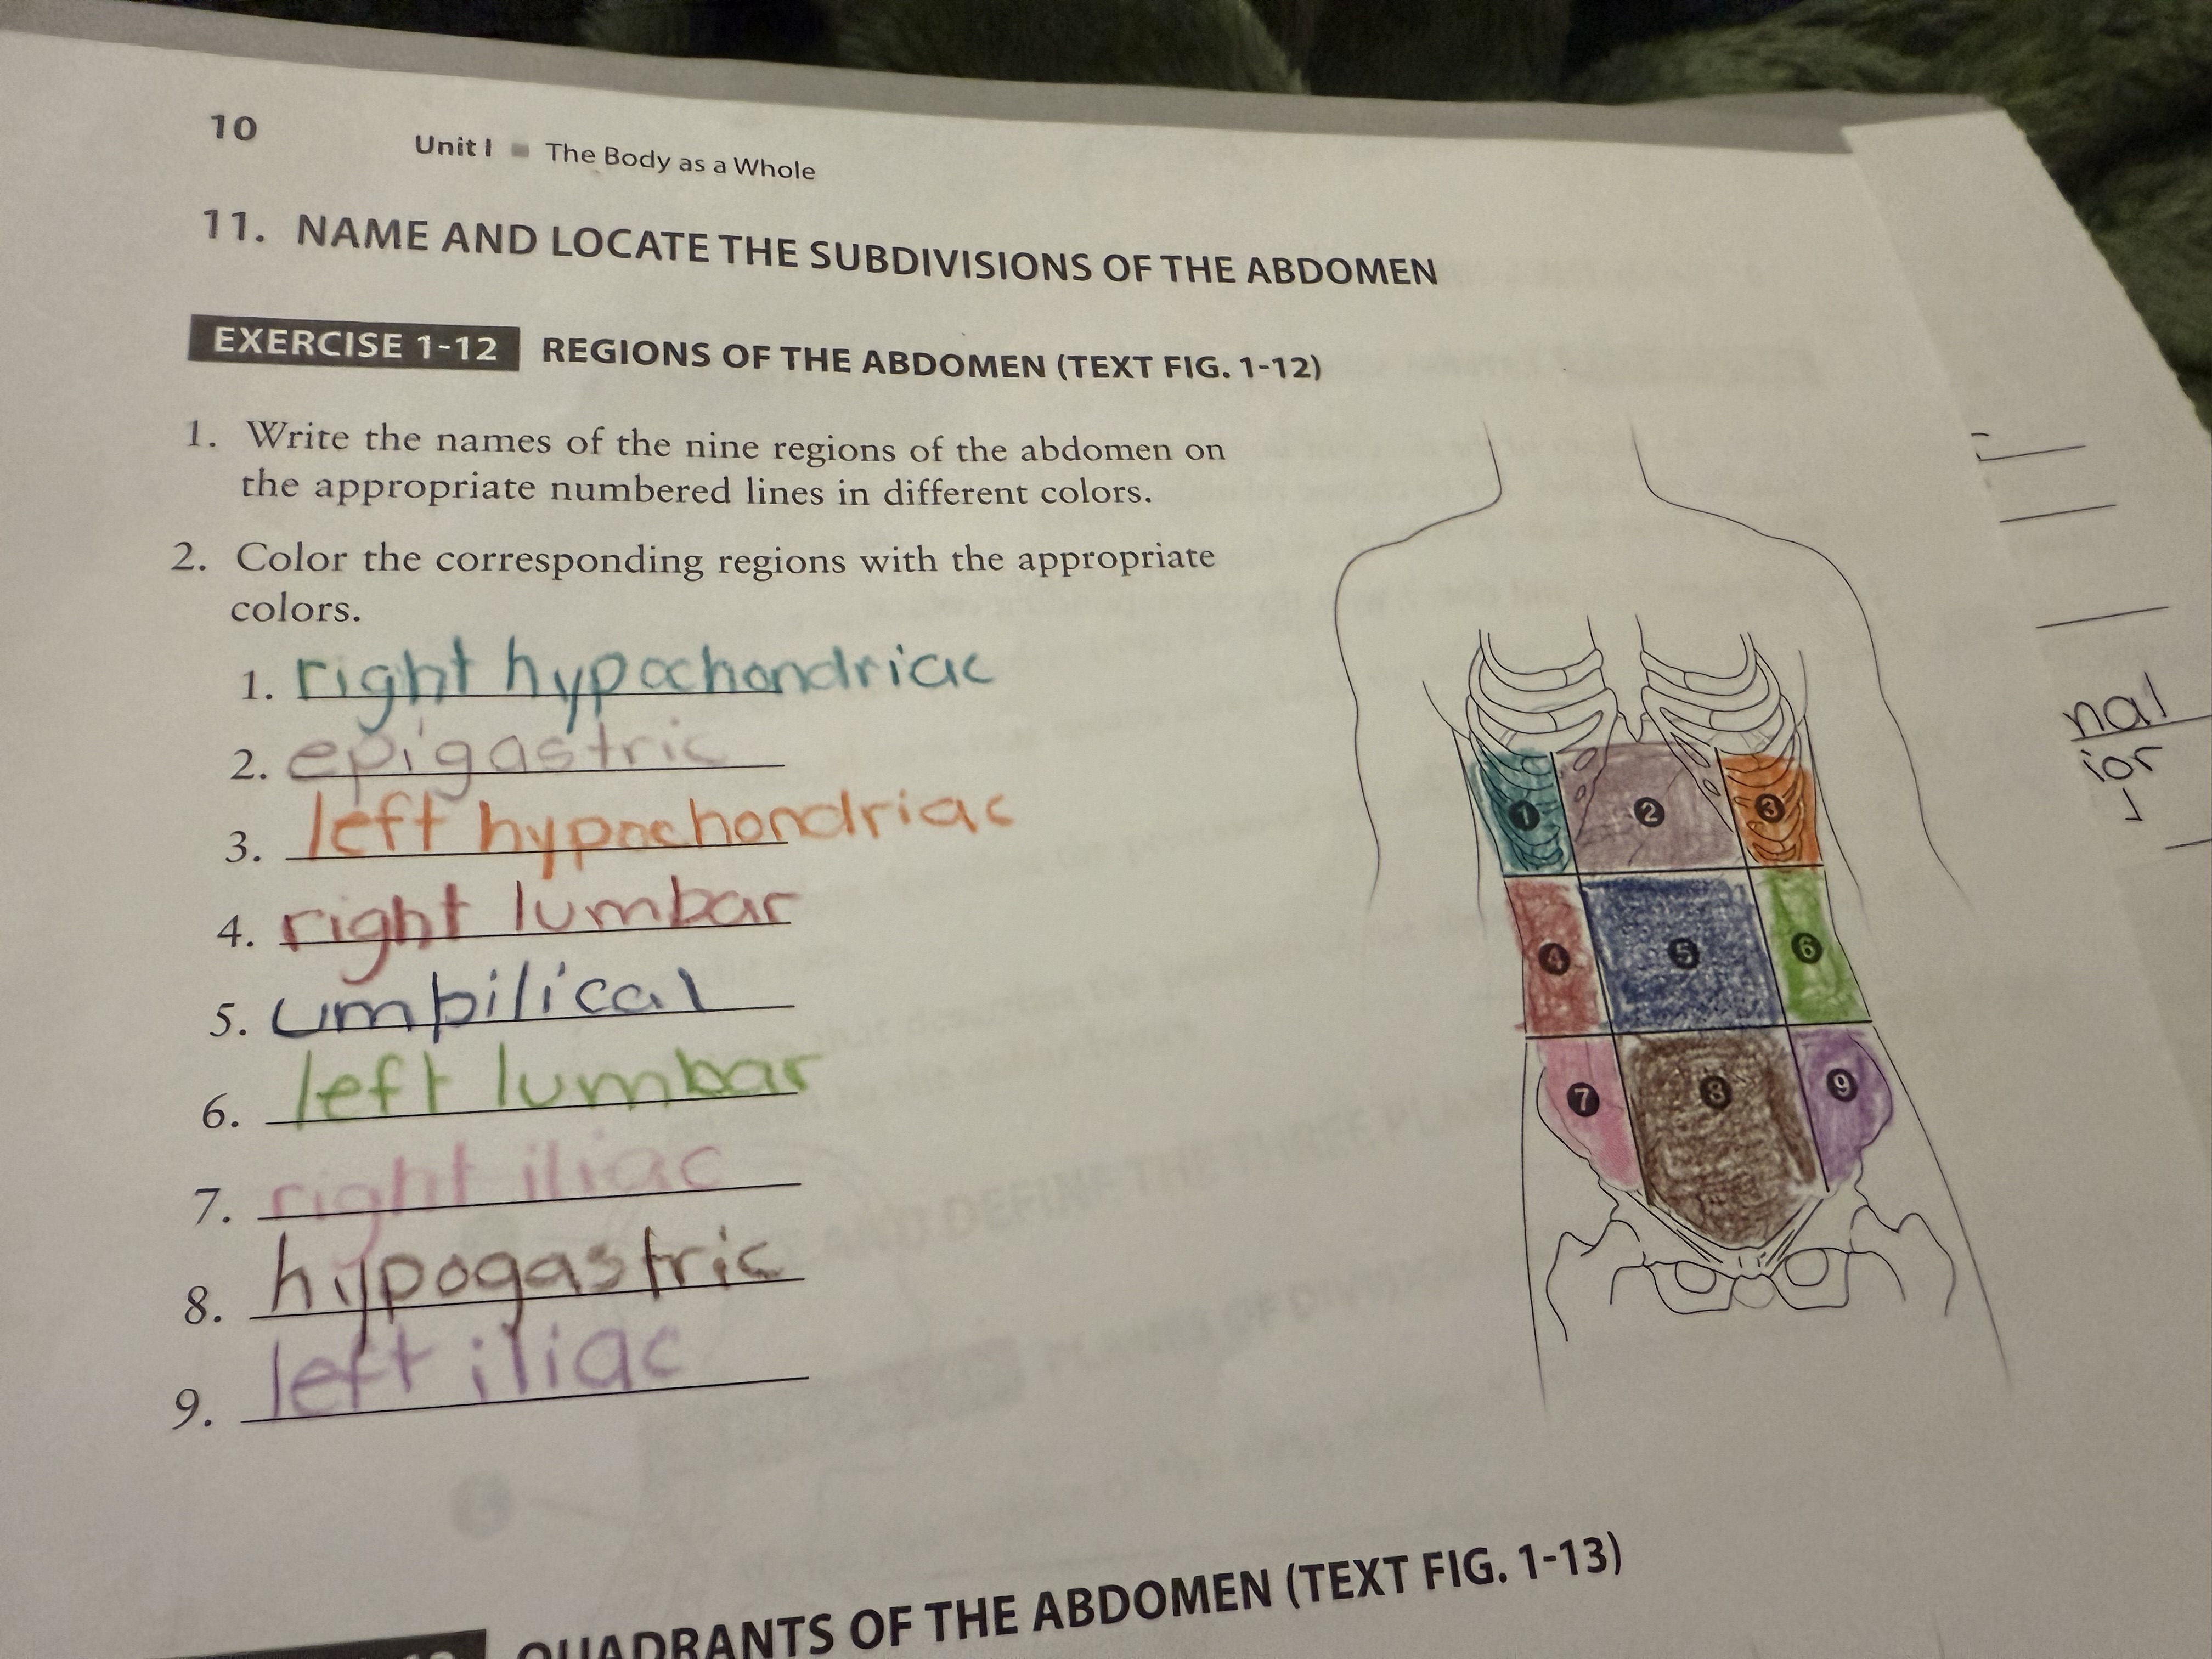 10
Unit I ■ The Body as a Whole
11. NAME AND LOCATE THE SUBDIVISIONS OF THE ABDOMEN
EXERCISE 1-12 REGIONS OF THE ABDOMEN (TEXT FIG. 1-12)
1. Write the names of the nine regions of the abdomen on
the appropriate numbered lines in different colors.
2. Color the corresponding regions with the appropriate
colors.
1. right hypochondriac
2. epigastric
3. left hypochondriac
4. right lumbar
5. umbilical
6. left lumbar
7. right iliac
8. hypogastric
9. left iliac
1 2 3
4 5 6
7 8 9
nal
ior
QUADRANTS OF THE ABDOMEN (TEXT FIG. 1-13)